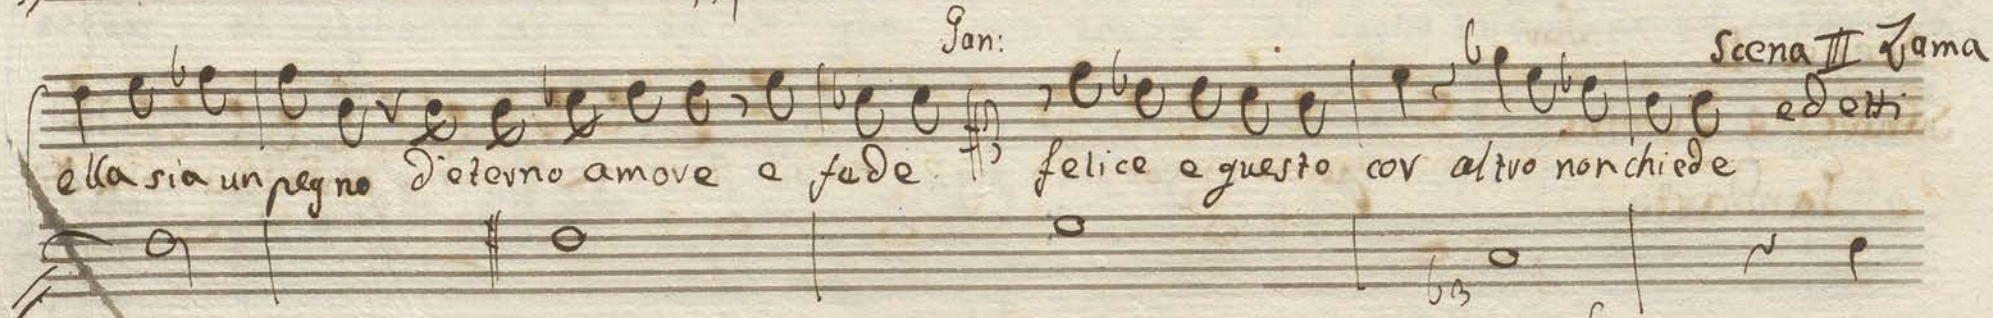 Gan:
Scena III Zama
e detti
ella sia un pegno d'eterno amore e fede felice e questo cor altro non chiede
b3